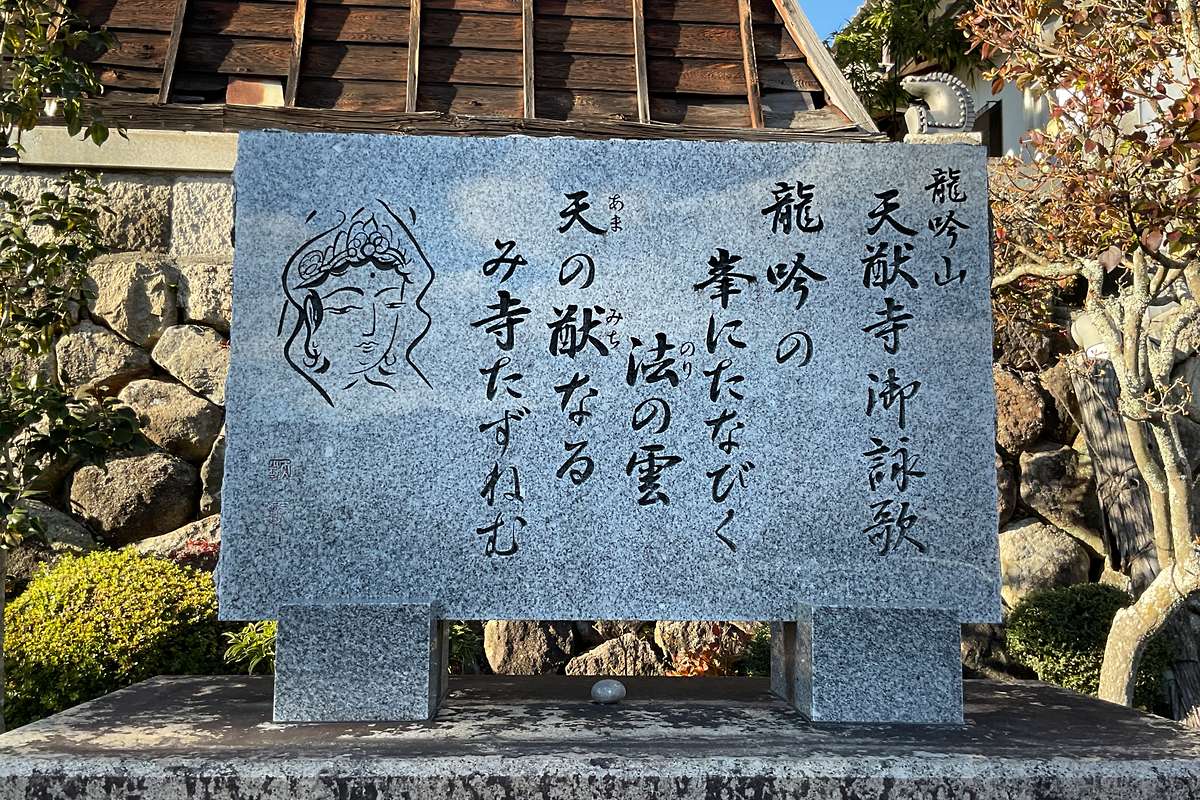 龍吟山
天猷寺御詠歌
龍吟の
峯にたなびく
法の雲
のり
天の猷なる
あま
みち
み寺たずねむ